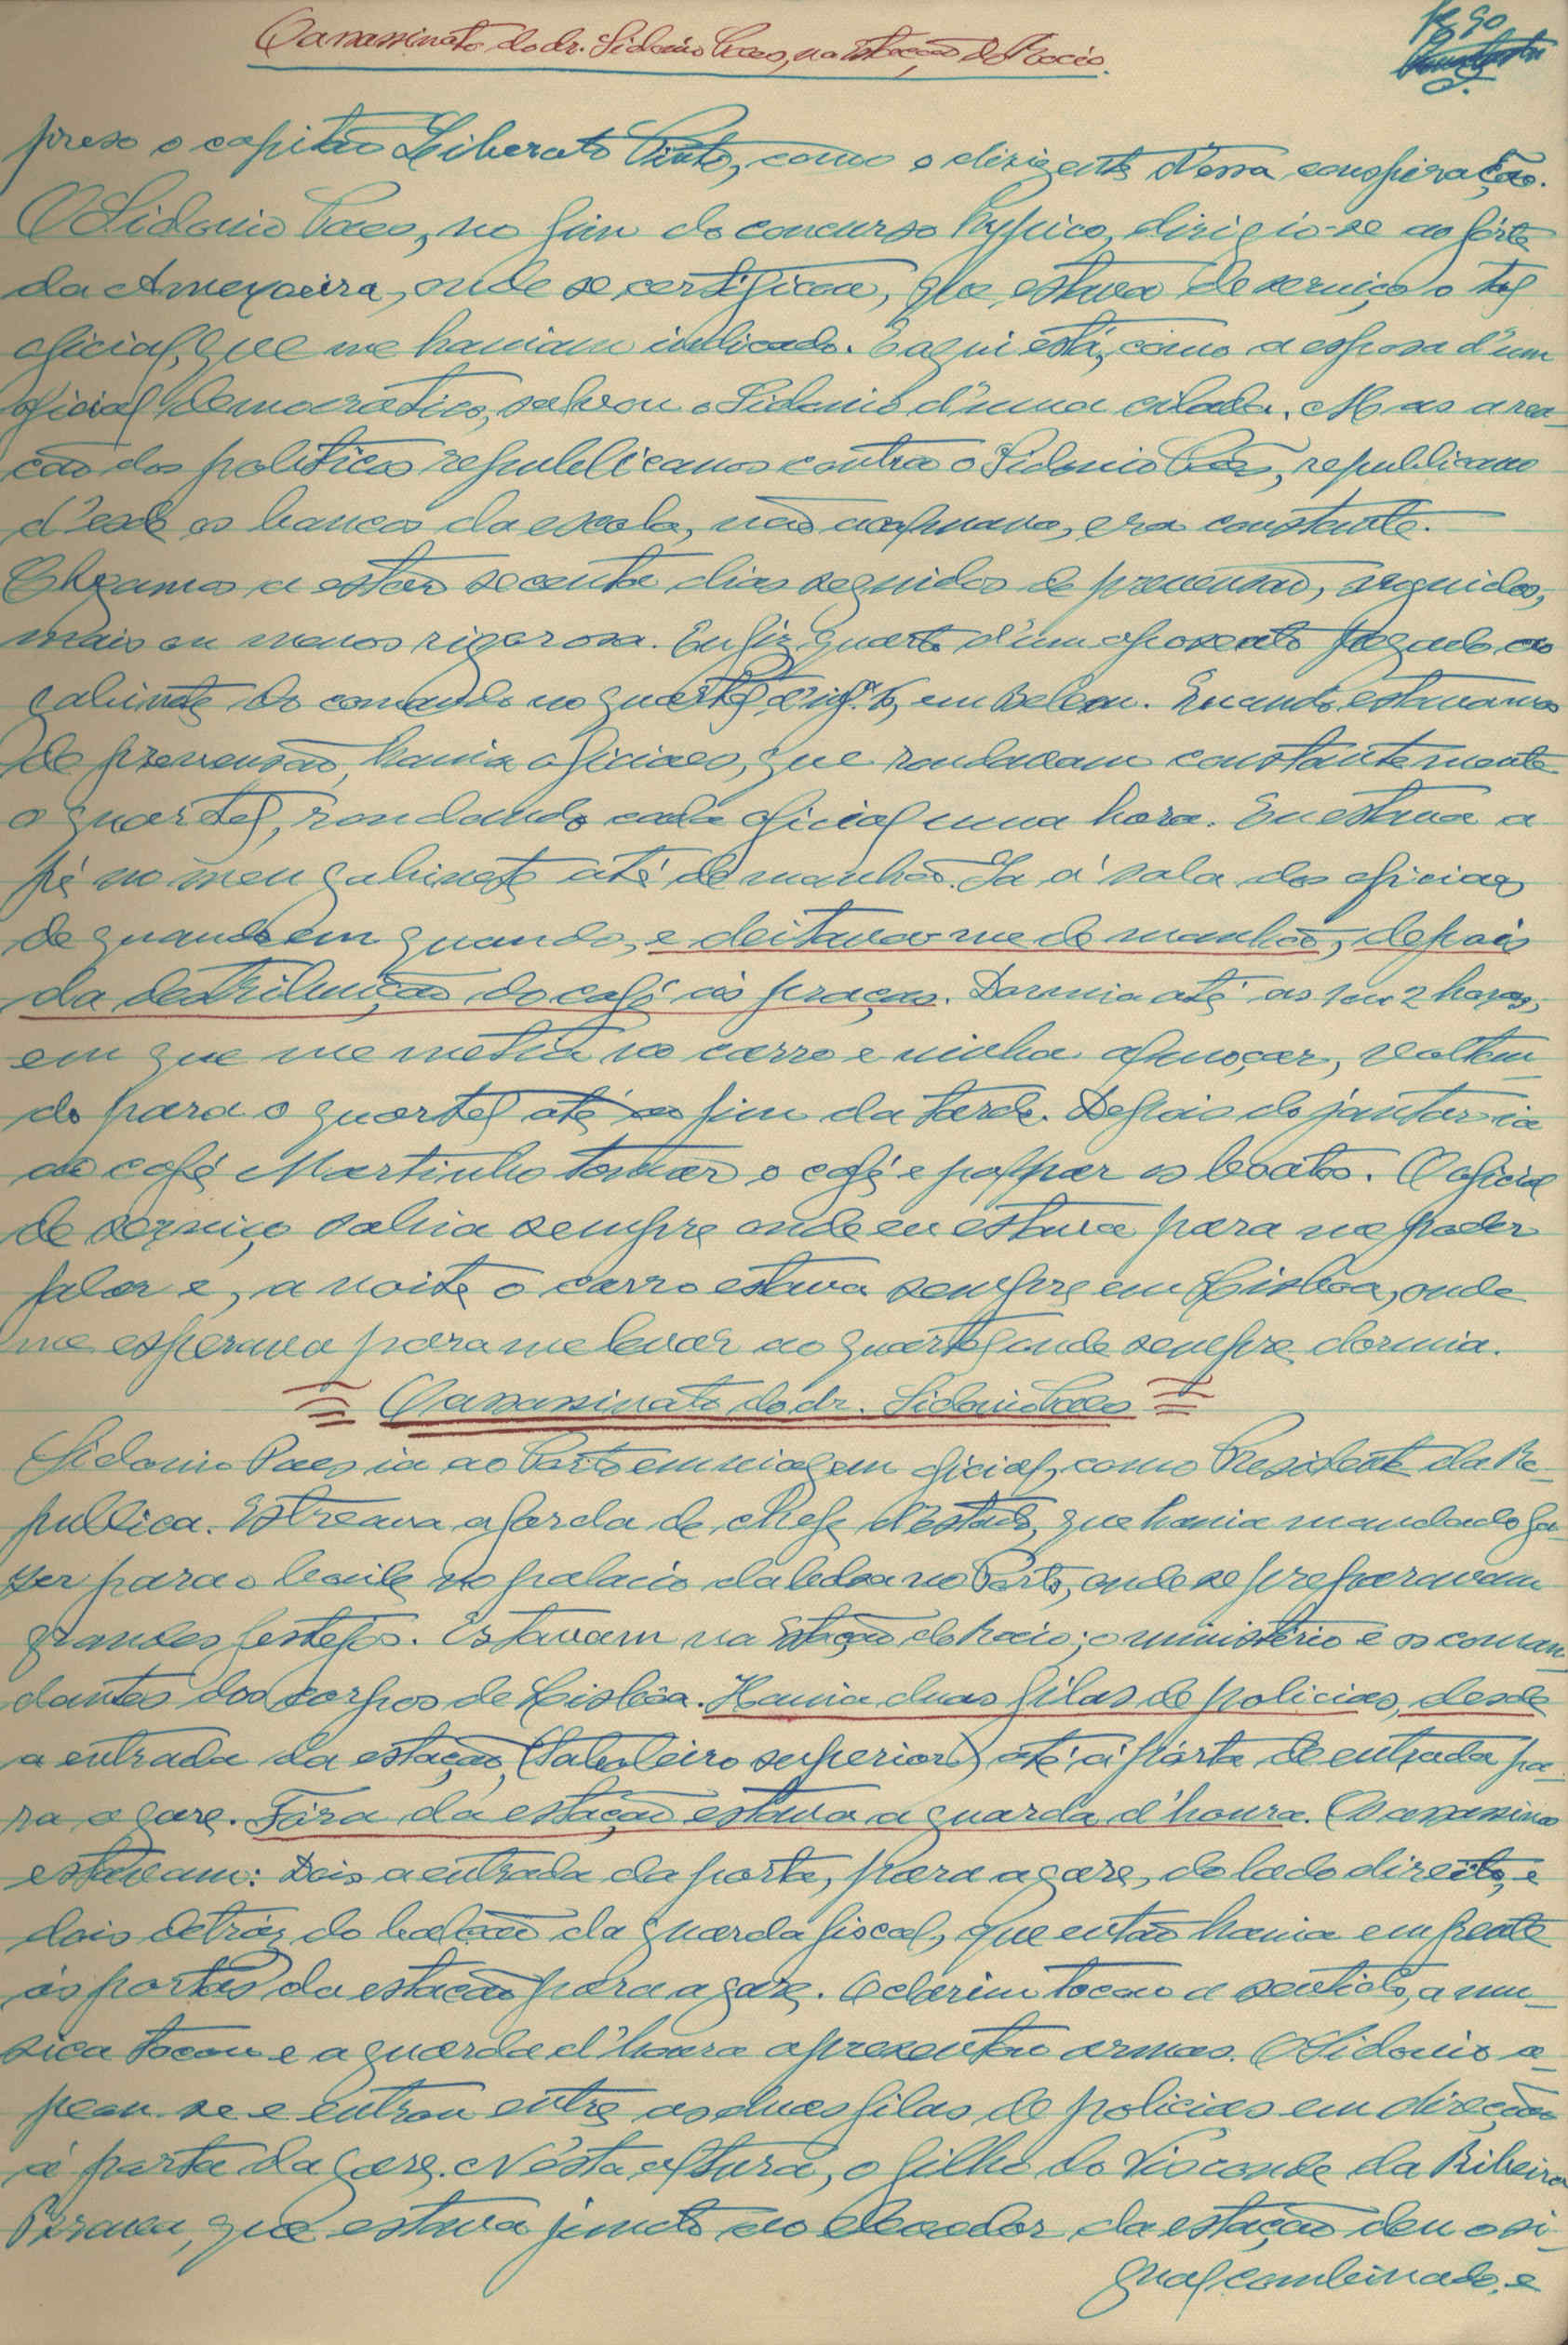 O assassinato do dr. Sidonio Paes, na estação do Rocio.
preso o capitão Liberato Pinto, como o dirigente d'essa conspiração.
O Sidonio Paes, no fim do concurso hyppico, dirigio-se ao forte
da Ameixoeira, onde se certificou, que estava de serviço o tal
oficial, que me haviam indicado. E aqui está, como a esposa d'um
oficial democratico, salvou o Sidonio d'uma cilada. Mas a rea-
ção dos politicos republicanos contra o Sidonio Paes, republicano
d'esde os bancos da escola, não acalmava, era constante.
Chegamos a estar secenta dias seguidos de prevensão, seguidos,
mais ou menos rigorosa. Eu fiz quarto d'um aposento pegado ao
gabinete do comando no quartel em Belem. Quando estavamos
de prevensão, havia oficiaes, que rondavam constantemente
o quartel, rondando cada oficial uma hora. Eu estava a
pé no meu gabinete até de manhã. Ia á sala dos oficiaes
de quando em quando, e deitava-me de manhã, depois
da destribuição do café ás praças. Dormia até as 1 ou 2 horas,
em que me metia no carro e vinha almoçar, voltan-
do para o quartel até ao fim da tarde. Depois do jantar ia
ao café Martinho tomar o café e palpar os boatos. O oficial
de serviço sabia sempre onde eu estava para me poder
falar e, a noite o carro estava sempre em Lisboa, onde
me esperava para me levar ao quartel onde sempre dormia.
O assassinato do dr. Sidonio Paes
Sidonio Paes ia ao Porto em viagem oficial, como Presidente da Re-
publica. Estreava a farda de chefe d'estado, que havia mandado fa-
zer para o baile no palacio da bolsa no Porto, onde se preparavam
grandes festejos. Estavam na estação do Rocio; o ministério e os coman-
dantes dos corpos de Lisbôa. Havia duas filas de policias, desde
a entrada da estação, (taboleiro superior) até á pórta de entrada pa-
ra a gare. Fóra da estação estava a guarda d'honra. Os assassinos
estavam: Dois a entrada da porta, para a gare, do lado direito, e
dois detráz do balcão da guarda fiscal, que então havia em frente
ás portas da estação para a gare. O clarim tocou a sentido, a mu-
sica tocou e a guarda d'honra apresentou armas. O Sidonio a-
peou-se e entrou entre as duas filas de policias em direção
á porta da gare. N'ésta altura, o filho do Visconde da Ribeira
Brava, que estava junto ao elevador da estação deu o si-
gnal combinado, e